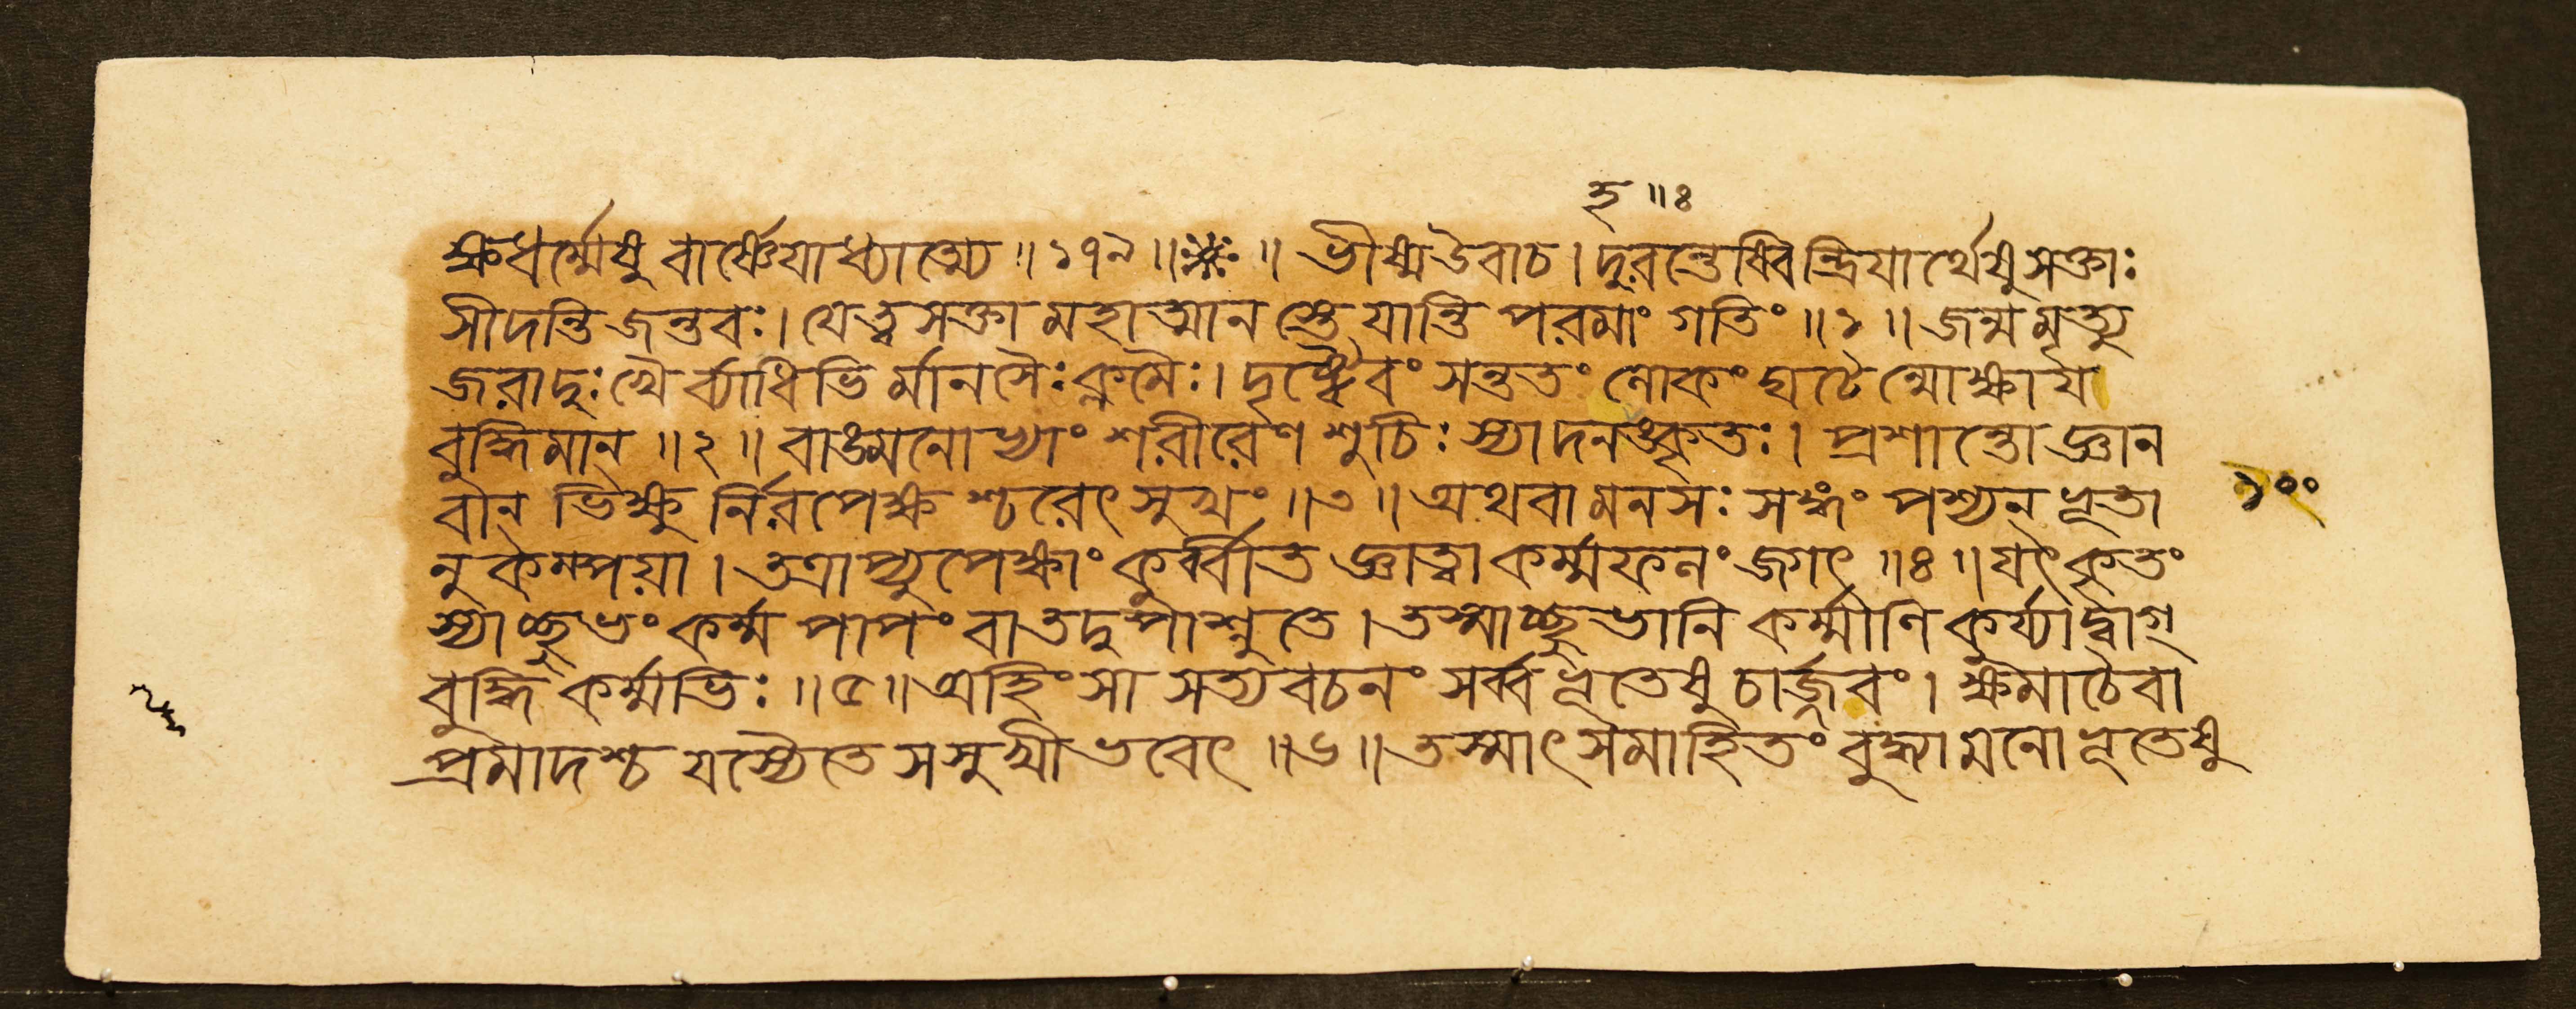 হ ॥ ঃ
ক্ষধর্ম্মেষু বার্ষ্ণেয়াধ্যাত্ম্যে ॥ ১৭৯ ॥ ॥ ভীষ্মউবাচ । দুরন্তেষ্বিন্দ্রিযার্থেষুসক্তাঃ
সীদন্তি জন্তবঃ । যেত্বসক্তা মহাত্মান স্তে যান্তি পরমাং গতিং ॥ ১ ॥ জন্মমৃত্যু
জরাদুঃখৈ র্ব্যাধিভি র্মানসৈঃ ক্লমৈঃ । দৃষ্ট্বৈবং সন্ততং লোকং ঘটেন্মোক্ষায
বুদ্ধিমান্ ॥ ২ ॥ বাঙ্মনোভ্যাং শরীরেণ শুচিঃ স্যাদনহঙ্কৃতঃ । প্রশান্তো জ্ঞান
বান্ ভিক্ষু র্নিরপেক্ষ শ্চরেৎ সুখং ॥ ৩ ॥ অথবা মনসঃ সঙ্গং পশ্যন্ ভূতা
১০০
নুকম্পয়া । তত্রাপ্যুপেক্ষাং কুর্ব্বীত জ্ঞাত্বা কর্ম্মফলং জগৎ ॥ ৪ ॥ যৎ কৃতং
স্যাচ্ছুভং কর্ম্ম পাপং বা তদুপাশ্নুতে । তস্মাচ্ছুভানি কর্ম্মাণি কুর্য্যাদ্বাগ্
বুদ্ধি কর্ম্মভিঃ ॥ ৫ ॥ অহিংসা সত্যবচনং সর্ব্বভূতেষু চার্জ্জবং । ক্ষমাচৈবা
প্রমাদশ্চ যস্যৈতে সসুখী ভবেৎ ॥ ৬ ॥ তস্মাৎ সমাহিতং বুদ্ধ্যা মনো ভূতেষু